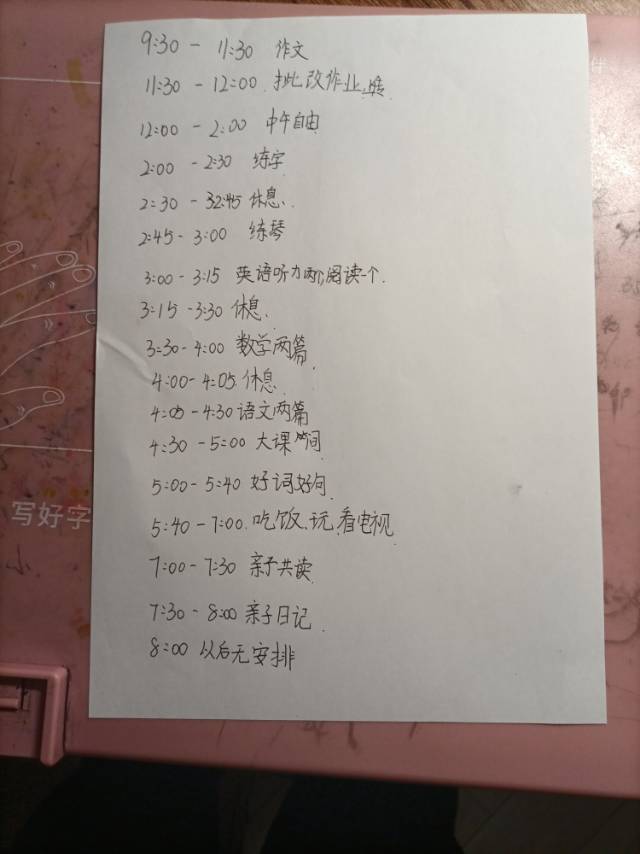 9:30 - 11:30 作文
11:30 - 12:00. 批改作业.
12:00 - 2:00 中午自由
2:00 - 2:30 练字
2:30 - 32:45 休息.
2:45 - 3:00 练琴
3:00 - 3:15 英语听力两个,阅读一个.
3:15 - 3:30 休息.
3:30 - 4:00 数学两篇.
4:00 - 4:05. 休息.
4:05 - 4:30 语文两篇
4:30 - 5:00 大课间
5:00 - 5:40 好词好句.
5:40 - 7:00. 吃饭、玩、看电视.
7:00 - 7:30 亲子共读
7:30 - 8:00 亲子日记.
8:00 以后无安排
写好字
伴